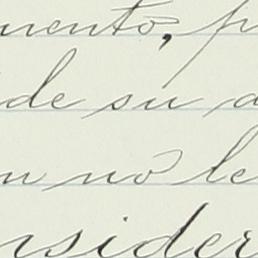 mento, p
de su a
n no le
nsider